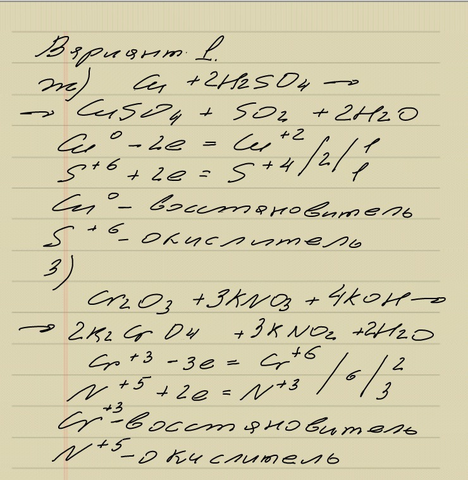 Вариант 1.
ж) Cu + 2H2SO4 →
→ CuSO4 + SO2 + 2H2O
Cu⁰ - 2e = Cu⁺² /2/ 1
S⁺⁶ + 2e = S⁺⁴ 1
Cu⁰ - восстановитель
S⁺⁶ - окислитель
з)
Cr2O3 + 3KNO3 + 4KOH →
→ 2K2CrO4 + 3KNO2 + 2H2O
Cr⁺³ - 3e = Cr⁺⁶ /6/ 2
N⁺⁵ + 2e = N⁺³ 3
Cr⁺³ - восстановитель
N⁺⁵ - окислитель